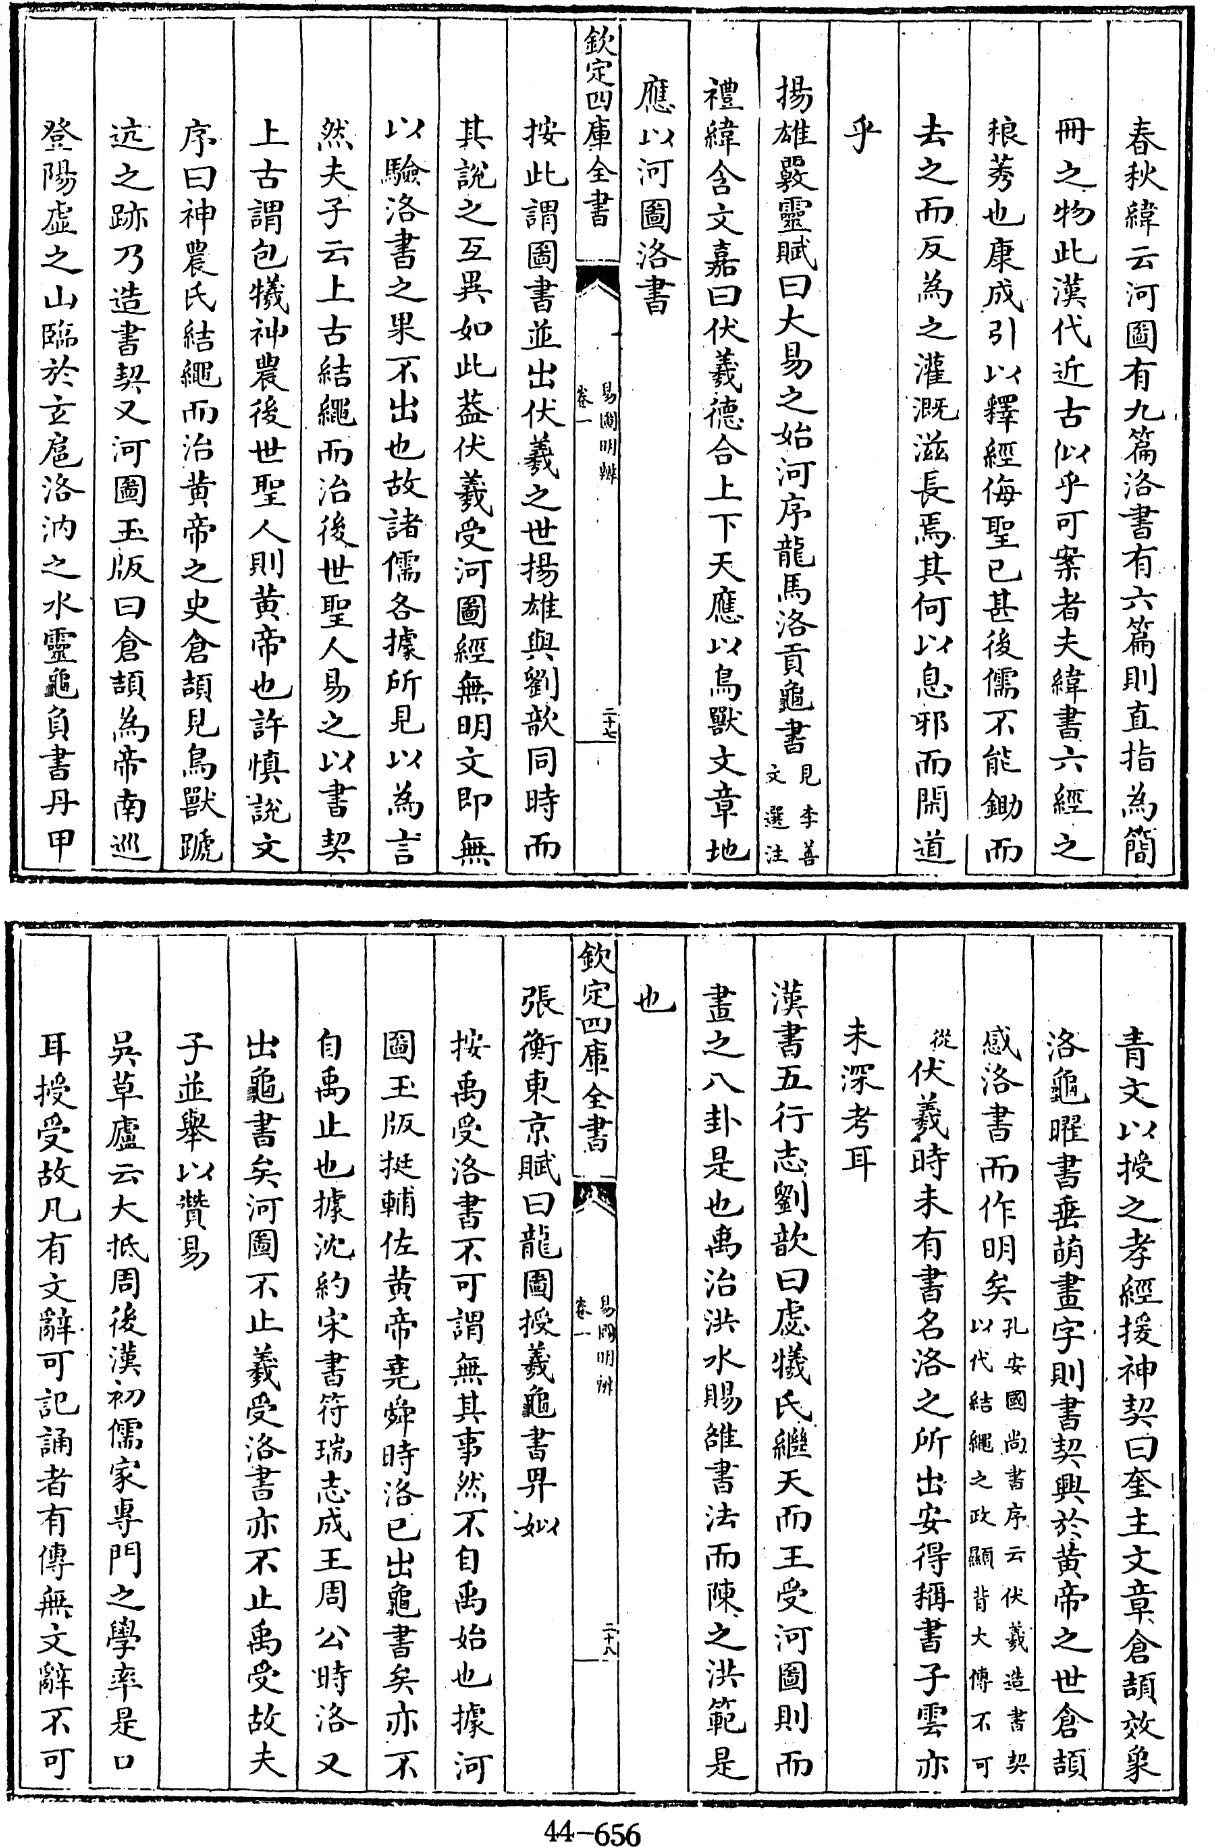 春秋緯云河圖有九篇洛書有六篇則直指為簡
冊之物此漢代近古似乎可案者夫緯書六經之
稂莠也康成引以釋經侮聖已甚後儒不能鋤而
去之而反為之灌溉滋長焉其何以息邪而閑道
乎
揚雄覈靈賦曰大易之始河序龍馬洛貢龜書見李善文選注
禮緯含文嘉曰伏羲德合上下天應以鳥獸文章地
應以河圖洛書
欽定四庫全書
易圖明辨
卷一
二十七
按此謂圖書並出伏羲之世揚雄與劉歆同時而
其說之互異如此蓋伏羲受河圖經無明文即無
以驗洛書之果不出也故諸儒各據所見以為言
然夫子云上古結繩而治後世聖人易之以書契
上古謂包犧神農後世聖人則黃帝也許慎說文
序曰神農氏結繩而治黃帝之史倉頡見鳥獸蹏
迒之跡乃造書契又河圖玉版曰倉頡為帝南巡
登陽虛之山臨於玄扈洛汭之水靈龜負書丹甲
青文以授之孝經援神契曰奎主文章倉頡效象
洛龜曜書垂萌畫字則書契興於黃帝之世倉頡
感洛書而作明矣孔安國尚書序云伏羲造書契以代結繩之政顯背大傳不可
從伏羲時未有書名洛之所出安得稱書子雲亦
未深考耳
漢書五行志劉歆曰虙犧氏繼天而王受河圖則而
畫之八卦是也禹治洪水賜雒書法而陳之洪範是
也
欽定四庫全書
易圖明辨
卷一
二十八
張衡東京賦曰龍圖授羲龜書畀姒
按禹受洛書不可謂無其事然不自禹始也據河
圖玉版挺輔佐黃帝堯舜時洛已出龜書矣亦不
自禹止也據沈約宋書符瑞志成王周公時洛又
出龜書矣河圖不止羲受洛書亦不止禹受故夫
子並舉以贊易
吳草廬云大抵周後漢初儒家專門之學率是口
耳授受故凡有文辭可記誦者有傳無文辭不可
44-656